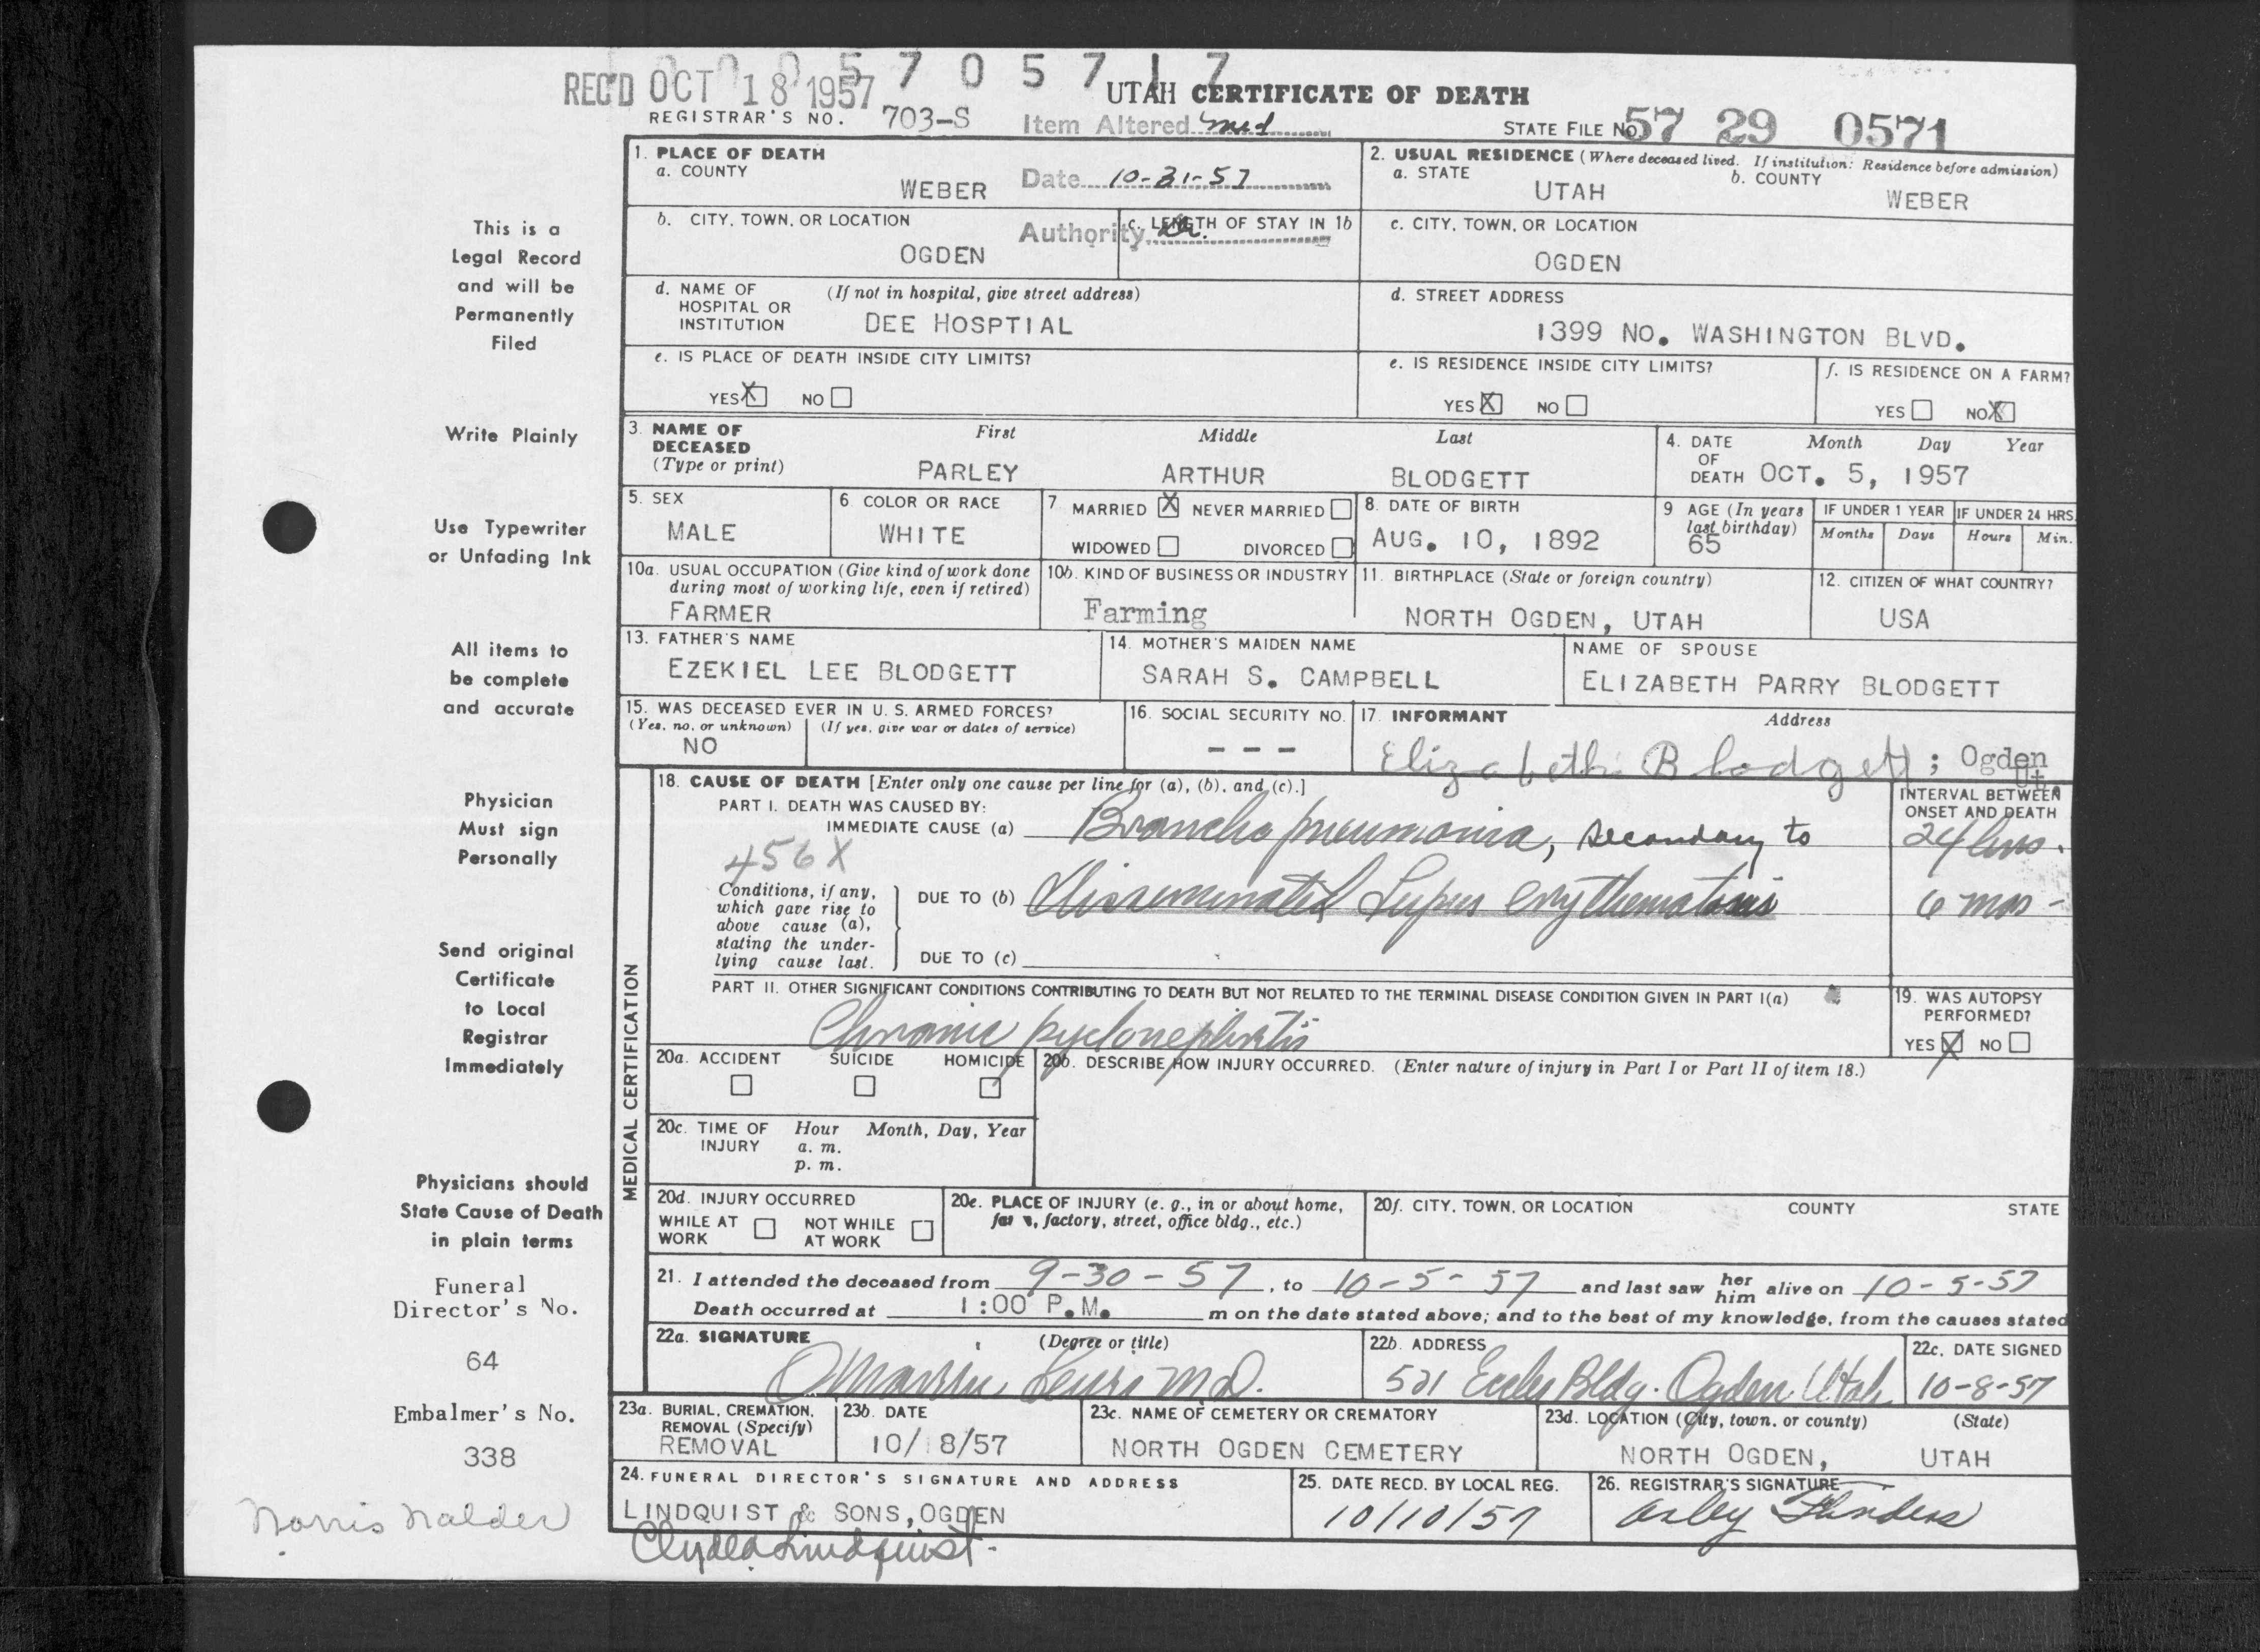 0 0 0 5 7 0 5 7 1 7
REC'D OCT 18 1957
UTAH CERTIFICATE OF DEATH
REGISTRAR'S NO. 703-S
Item Altered med
STATE FILE NO. 57 29 0571
1. PLACE OF DEATH
a. COUNTY
WEBER
Date 10-31-57
2. USUAL RESIDENCE (Where deceased lived. If institution: Residence before admission)
a. STATE
UTAH
b. COUNTY
WEBER
b. CITY, TOWN, OR LOCATION
OGDEN
Authority Dr.
c. LENGTH OF STAY IN 1b
c. CITY, TOWN, OR LOCATION
OGDEN
d. NAME OF HOSPITAL OR INSTITUTION (If not in hospital, give street address)
DEE HOSPTIAL
d. STREET ADDRESS
1399 NO. WASHINGTON BLVD.
e. IS PLACE OF DEATH INSIDE CITY LIMITS?
YES X NO
e. IS RESIDENCE INSIDE CITY LIMITS?
YES X NO
f. IS RESIDENCE ON A FARM?
YES NO X
3. NAME OF DECEASED (Type or print)
First Middle Last
PARLEY ARTHUR BLODGETT
4. DATE OF DEATH Month Day Year
OCT. 5, 1957
5. SEX
MALE
6. COLOR OR RACE
WHITE
7. MARRIED X NEVER MARRIED
WIDOWED DIVORCED
8. DATE OF BIRTH
AUG. 10, 1892
9 AGE (In years last birthday)
65
IF UNDER 1 YEAR
Months Days
IF UNDER 24 HRS.
Hours Min.
10a. USUAL OCCUPATION (Give kind of work done during most of working life, even if retired)
FARMER
10b. KIND OF BUSINESS OR INDUSTRY
Farming
11. BIRTHPLACE (State or foreign country)
NORTH OGDEN, UTAH
12. CITIZEN OF WHAT COUNTRY?
USA
13. FATHER'S NAME
EZEKIEL LEE BLODGETT
14. MOTHER'S MAIDEN NAME
SARAH S. CAMPBELL
NAME OF SPOUSE
ELIZABETH PARRY BLODGETT
15. WAS DECEASED EVER IN U. S. ARMED FORCES?
(Yes, no, or unknown) (If yes, give war or dates of service)
NO
16. SOCIAL SECURITY NO.
- - -
17. INFORMANT Address
Elizabeth Blodgett; Ogden Ut.
MEDICAL CERTIFICATION
18. CAUSE OF DEATH [Enter only one cause per line for (a), (b), and (c).]
PART I. DEATH WAS CAUSED BY:
IMMEDIATE CAUSE (a) Broncho pneumonia, secondary to
INTERVAL BETWEEN ONSET AND DEATH
24 hrs.
456X
Conditions, if any, which gave rise to above cause (a), stating the underlying cause last.
DUE TO (b) Disseminated Lupus Erythematosis
6 mos -
DUE TO (c)
PART II. OTHER SIGNIFICANT CONDITIONS CONTRIBUTING TO DEATH BUT NOT RELATED TO THE TERMINAL DISEASE CONDITION GIVEN IN PART I(a)
Chronic pyelonephritis
19. WAS AUTOPSY PERFORMED?
YES X NO
20a. ACCIDENT SUICIDE HOMICIDE
20b. DESCRIBE HOW INJURY OCCURRED. (Enter nature of injury in Part I or Part II of item 18.)
20c. TIME OF INJURY Hour Month, Day, Year
a. m.
p. m.
20d. INJURY OCCURRED
WHILE AT WORK NOT WHILE AT WORK
20e. PLACE OF INJURY (e. g., in or about home, farm, factory, street, office bldg., etc.)
20f. CITY, TOWN, OR LOCATION COUNTY STATE
21. I attended the deceased from 9-30-57, to 10-5-57 and last saw her him alive on 10-5-57
Death occurred at 1:00 P.M. m on the date stated above; and to the best of my knowledge, from the causes stated
22a. SIGNATURE (Degree or title)
M.D.
22b. ADDRESS
521 Eccles Bldg. Ogden, Utah
22c. DATE SIGNED
10-8-57
23a. BURIAL, CREMATION, REMOVAL (Specify)
REMOVAL
23b. DATE
10/ 8/57
23c. NAME OF CEMETERY OR CREMATORY
NORTH OGDEN CEMETERY
23d. LOCATION (City, town, or county) (State)
NORTH OGDEN, UTAH
24. FUNERAL DIRECTOR'S SIGNATURE AND ADDRESS
LINDQUIST & SONS, OGDEN
Clyde Lindquist
25. DATE RECD. BY LOCAL REG.
10/10/57
26. REGISTRAR'S SIGNATURE
This is a
Legal Record
and will be
Permanently
Filed
Write Plainly
Use Typewriter
or Unfading Ink
All items to
be complete
and accurate
Physician
Must sign
Personally
Send original
Certificate
to Local
Registrar
Immediately
Physicians should
State Cause of Death
in plain terms
Funeral
Director's No.
64
Embalmer's No.
338
Norris Nalder